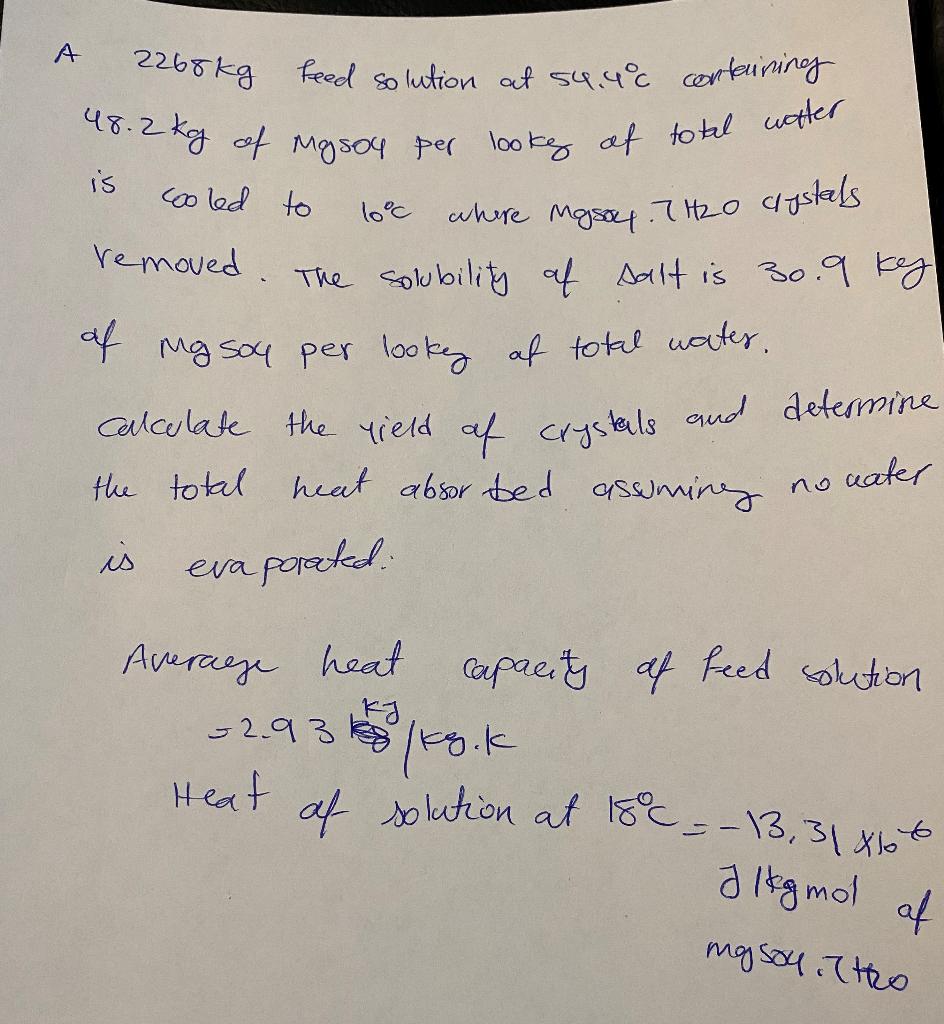 A 2268kg feed solution at 54.4°C containing
48.2 kg of MgSO4 per 100kg of total water
is cooled to 10°C where MgSO4.7H2O crystals
removed. The solubility of salt is 30.9 kg
of MgSO4 per 100kg of total water.
calculate the yield of crystals and determine
the total heat absorbed assuming no water
is evaporated.
Average heat capacity of feed solution
=2.93 kJ/kg.K
Heat of solution at 18°C = -13,31 x10^-6
J/kgmol of
MgSO4.7H2O